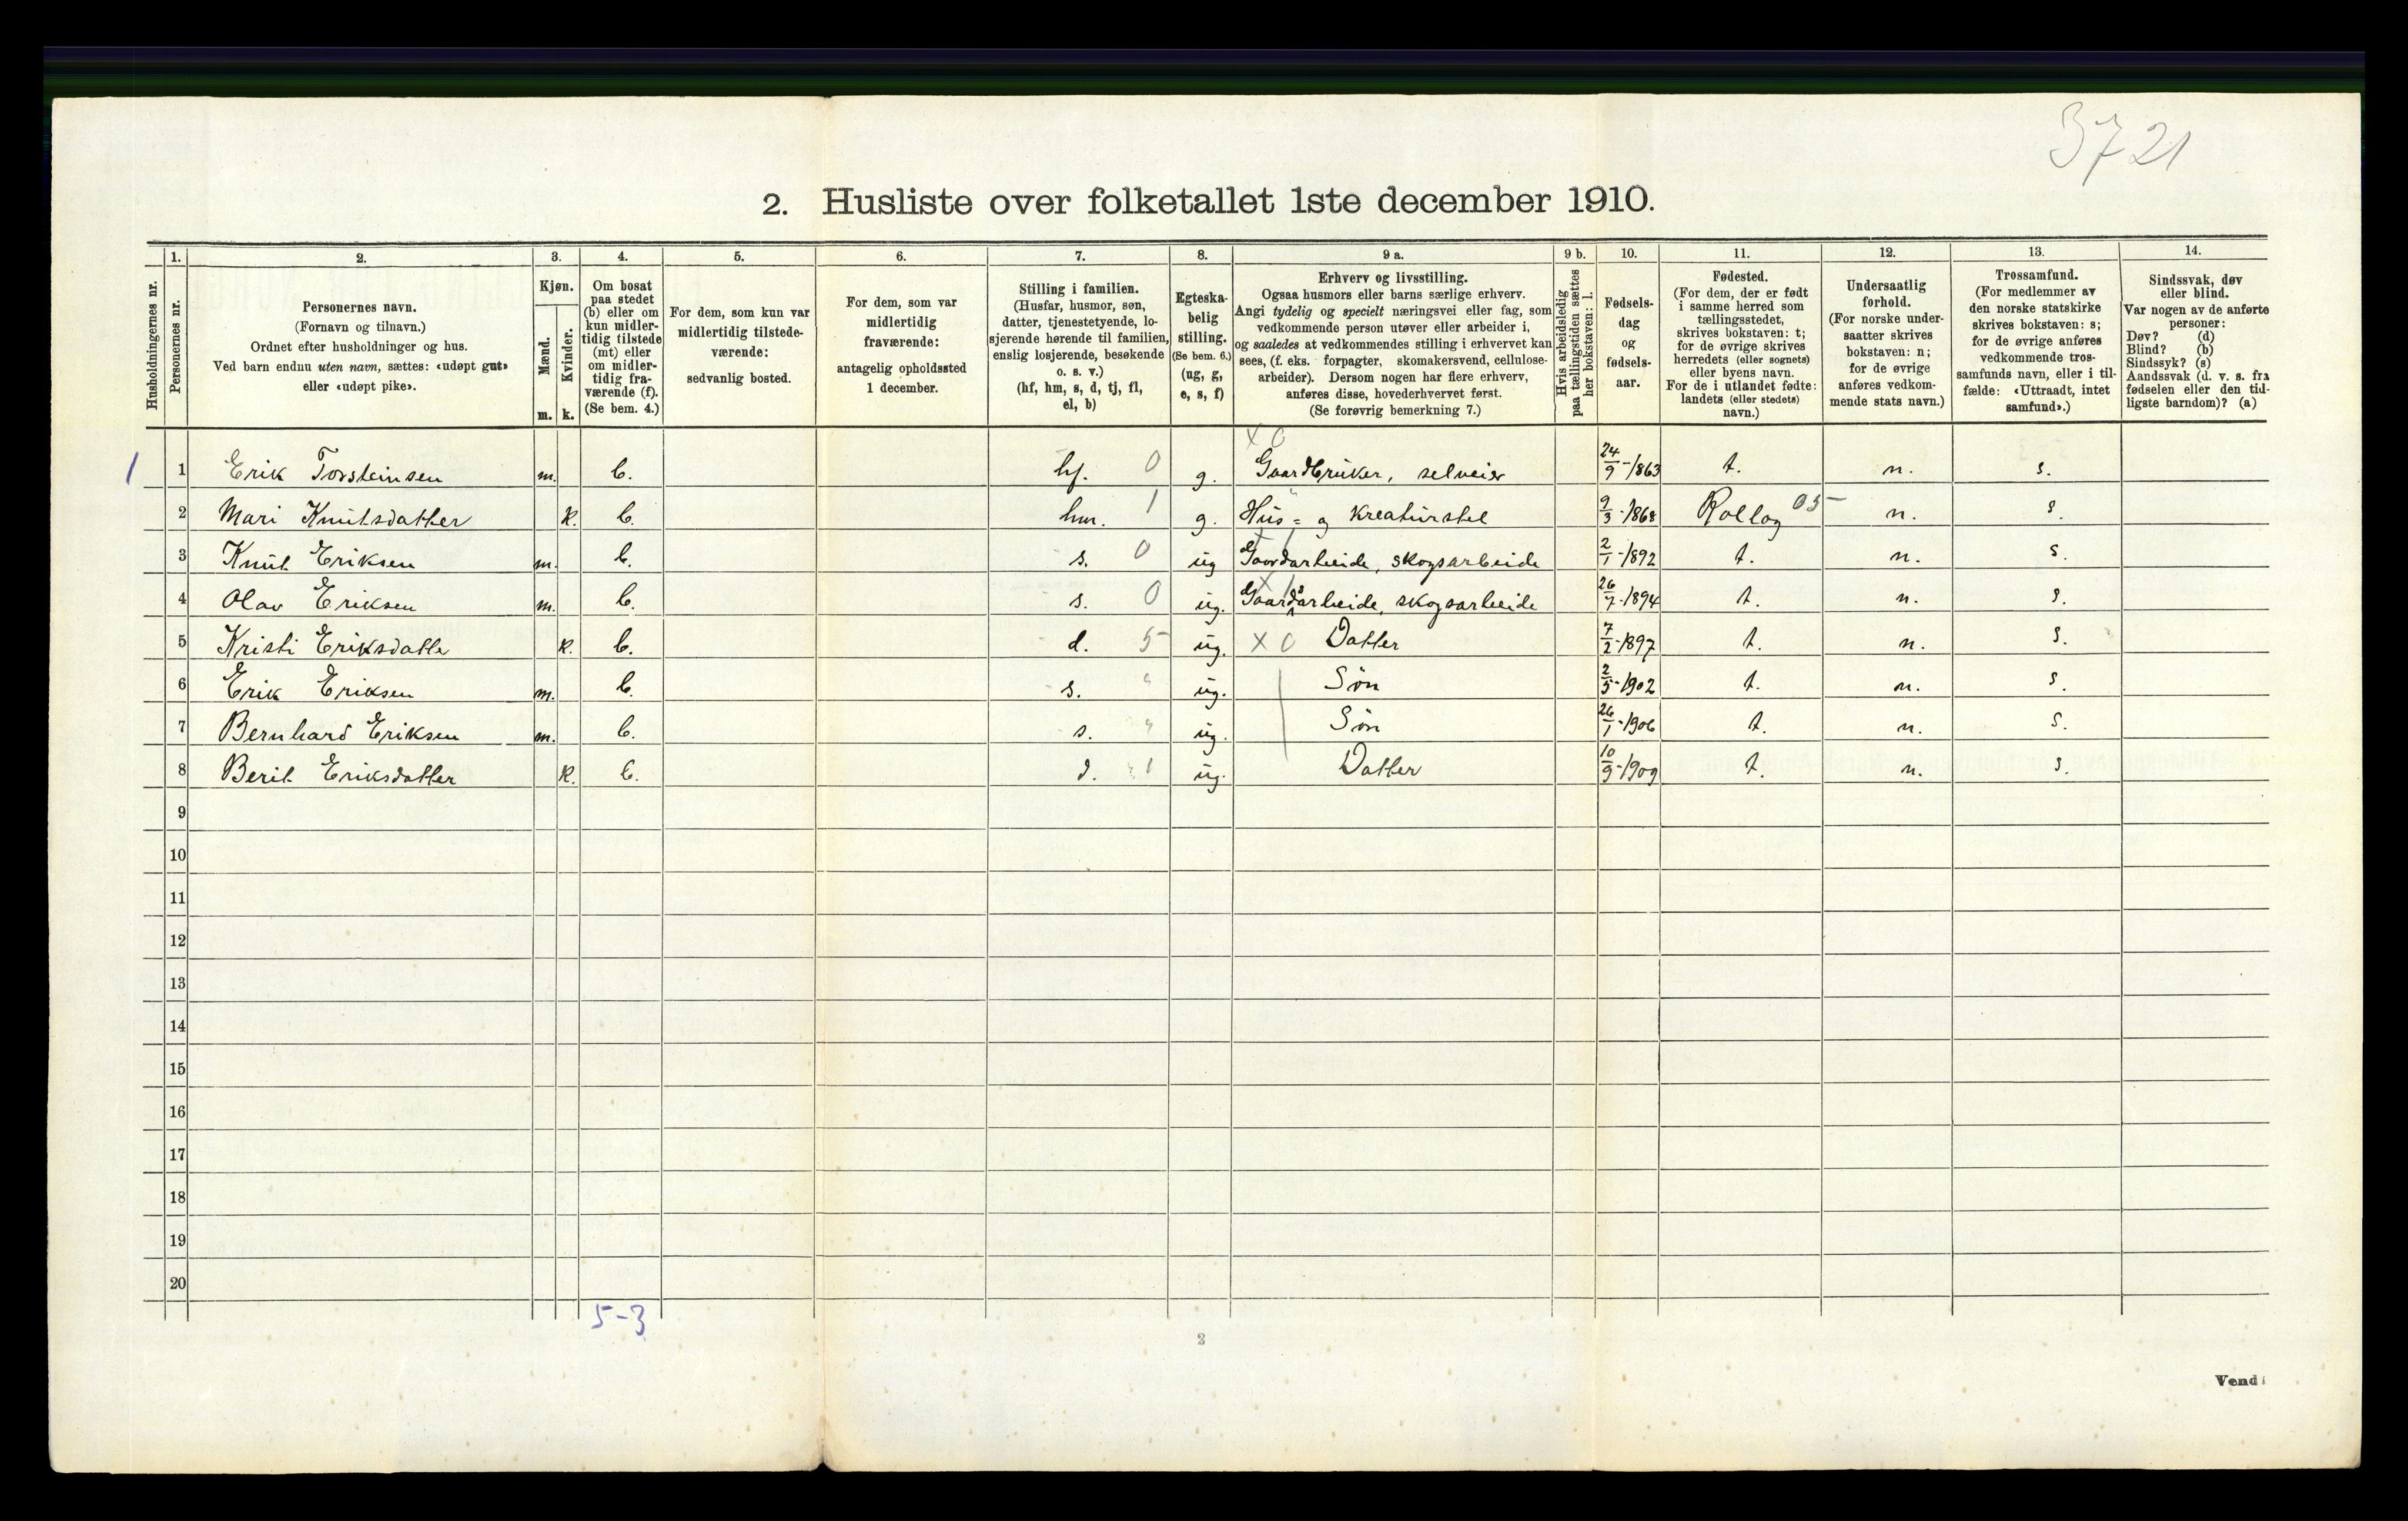 3721
2. Husliste over folketallet 1ste december 1910.
Husholdningernes nr.
1.
Personernes nr.
2.
Personernes navn.
(Fornavn og tilnavn.)
Ordnet efter husholdninger og hus.
Ved barn endnu uten navn, sættes: «udøpt gut»
eller «udøpt pike».
3.
Kjøn.
Mænd.
m.
Kvinder.
k.
4.
Om bosat
paa stedet
(b) eller om
kun midler-
tidig tilstede
(mt) eller
om midler-
tidig fra-
værende (f).
(Se bem. 4.)
5.
For dem, som kun var
midlertidig tilstede-
værende:
sedvanlig bosted.
6.
For dem, som var
midlertidig
fraværende:
antagelig opholdssted
1 december.
7.
Stilling i familien.
(Husfar, husmor, søn,
datter, tjenestetyende, lo-
sjerende hørende til familien,
enslig losjerende, besøkende
o. s. v.)
(hf, hm, s, d, tj, fl,
el, b)
8.
Egteska-
belig
stilling.
(Se bem. 6.)
(ug, g,
e, s, f)
9 a.
Erhverv og livsstilling.
Ogsaa husmors eller barns særlige erhverv.
Angi tydelig og specielt næringsvei eller fag, som
vedkommende person utøver eller arbeider i,
og saaledes at vedkommendes stilling i erhvervet kan
sees, (f. eks. forpagter, skomakersvend, cellulose-
arbeider). Dersom nogen har flere erhverv,
anføres disse, hovederhvervet først.
(Se forøvrig bemerkning 7.)
9 b.
Hvis arbeidsledig
paa tællingstiden sættes
her bokstaven: l.
10.
Fødsels-
dag
og
fødsels-
aar.
11.
Fødested.
(For dem, der er født
i samme herred som
tællingsstedet,
skrives bokstaven: t;
for de øvrige skrives
herredets (eller sognets)
eller byens navn.
For de i utlandet fødte:
landets (eller stedets)
navn.)
12.
Undersaatlig
forhold.
(For norske under-
saatter skrives
bokstaven: n;
for de øvrige
anføres vedkom-
mende stats navn.)
13.
Trossamfund.
(For medlemmer av
den norske statskirke
skrives bokstaven: s;
for de øvrige anføres
vedkommende tros-
samfunds navn, eller i til-
fælde: «Uttraadt, intet
samfund».)
14.
Sindssvak, døv
eller blind.
Var nogen av de anførte
personer:
Døv? (d)
Blind? (b)
Sindssyk? (s)
Aandssvak (d. v. s. fra
fødselen eller den tid-
ligste barndom)? (a)
X 0
1 1 Erik Torsteinsen m. b. hf. 0 g. Gaardbruker, selveier 24/9-1863 t. n. s.
2 Mari Knutsdatter k. b. hm. 1 g. Hus= og kreaturstel 9/3-1868 Rollag 05 n. s.
3 Knut Eriksen m. b. s. 0 ug Gaardarbeide, skogsarbeide 2/1-1892 t. n. s.
4 Olav Eriksen m. b. s. 0 ug. Gaardsarbeide, skogsarbeide 26/7-1894 t. n. s.
5 Kristi Eriksdatte k. b. d. 5 ug. X 0 Datter 7/2-1897 t. n. s.
6 Erik Eriksen m. b. s. ug. Søn 2/5-1902 t. n. s.
7 Bernhard Eriksen m. b. s. ug. Søn 26/1-1906 t. n. s.
8 Berit Eriksdatter k. b. d. 1 ug. Datter 10/9-1909 t. n. s.
9
10
11
12
13
14
15
16
17
18
19
20
5-3
2
Vend